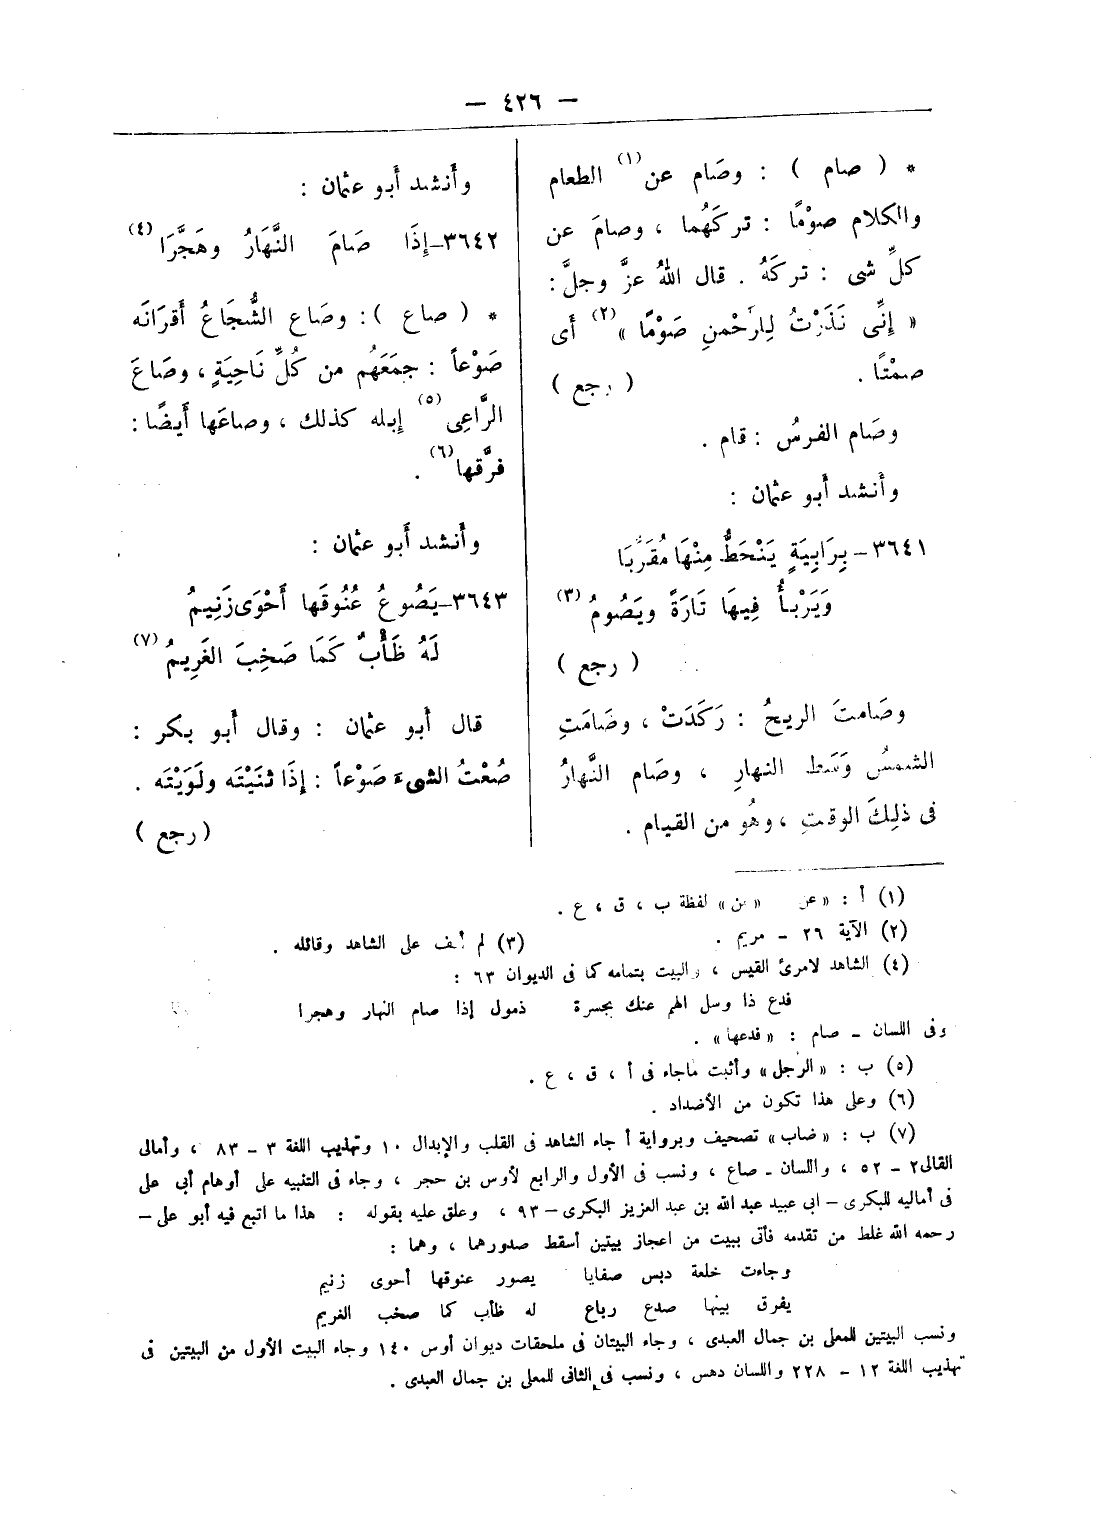 — ٤٢٦ —
* ( صام ) : وصَام عن(١) الطعام
والكلام صوْمًا : تركَهُما ، وصامَ عن
كلِّ شى : تركَهُ . قال اللهُ عزَّ وجلَّ :
« إنِّى نَذَرْتُ لِلرَّحْمنِ صَوْمًا »(٢) أى
صمْتًا . ( رجع )
وصَام الفرسُ : قام .
وأنشد أبو عثمان :
٣٦٤١ – بِرَابِيَةٍ يَنْحَطُّ مِنْهَا مُقَرَّبًا
وَيَرْبأُ فِيهَا تَارَةً ويَصُومُ (٣)
( رجع )
وصَامتَ الريحُ : رَكَدَتْ ، وصَامَتِ
الشمسُ وَسَط النهارِ ، وصَام النَّهارُ
فى ذلِكَ الوقتِ ، وهُو من القيام .
وأنشد أبو عثمان :
٣٦٤٢–إِذَا صَامَ النَّهَارُ وهَجَّرَا (٤)
* ( صاع ) : وصَاع الشُّجَاعُ أقرَانَه
صَوْعاً : جمَعَهُم من كُلِّ نَاحِيَةٍ ، وصَاعَ
الرَّاعِى(٥) إبله كذلك ، وصاعَها أيضًا :
فرَّقها(٦) .
وأنشد أبو عثمان :
٣٦٤٣–يَصُوعُ عُنُوقَها أَحْوَى زَنِيمُ
لَهُ ظَأْبٌ كَمَا صَخِبَ الغَرِيمُ (٧)
قال أبو عثمان : وقال أبو بكر :
صُعْتُ الشىءَ صَوْعاً : إذَا ثنَيْتَه ولَوَيْتَه .
( رجع )
(١) أ : «عن «من» لفظة ب ، ق ، ع .
(٢) الآية ٢٦ – مريم . (٣) لم أقف على الشاهد وقائله .
(٤) الشاهد لامرئ القيس ، والبيت بتمامه كما فى الديوان ٦٣ :
فدع ذا وسل الهم عنك بجسرة ذمول إذا صام النهار وهجرا
وفى اللسان – صام : « فدعها » .
(٥) ب : « الرجل » وأثبت ماجاء فى أ ، ق ، ع .
(٦) وعلى هذا تكون من الأضداد .
(٧) ب : « ضاب » تصحيف وبرواية أ جاء الشاهد فى القلب والإبدال ١٠ وتهذيب اللغة ٣ – ٨٣ ، وأمالى
القالى ٢ – ٥٢ ، واللسان – صاع ، ونسب فى الأول والرابع لأوس بن حجر ، وجاء فى التنبيه على أوهام أبى على
فى أماليه للبكرى – ابى عبيد عبد الله بن عبد العزيز البكرى – ٩٣ ، وعلق عليه بقوله : هذا ما اتبع فيه أبو على –
رحمه الله غلط من تقدمه فأتى ببيت من اعجاز بيتين أسقط صدورهما ، وهما :
وجاءت خلعة دبس صفايا يصور عنوقها أحوى زنيم
يفرق بينها صدع رباع له ظأب كما صخب الغريم
ونسب البيتين للمعلى بن جمال العبدى ، وجاء البيتان فى ملحقات ديوان أوس ١٤٠ وجاء البيت الأول من البيتين فى
تهذيب اللغة ١٢ – ٢٢٨ واللسان دهس ، ونسب فى الثانى للمعلى بن جمال العبدى .